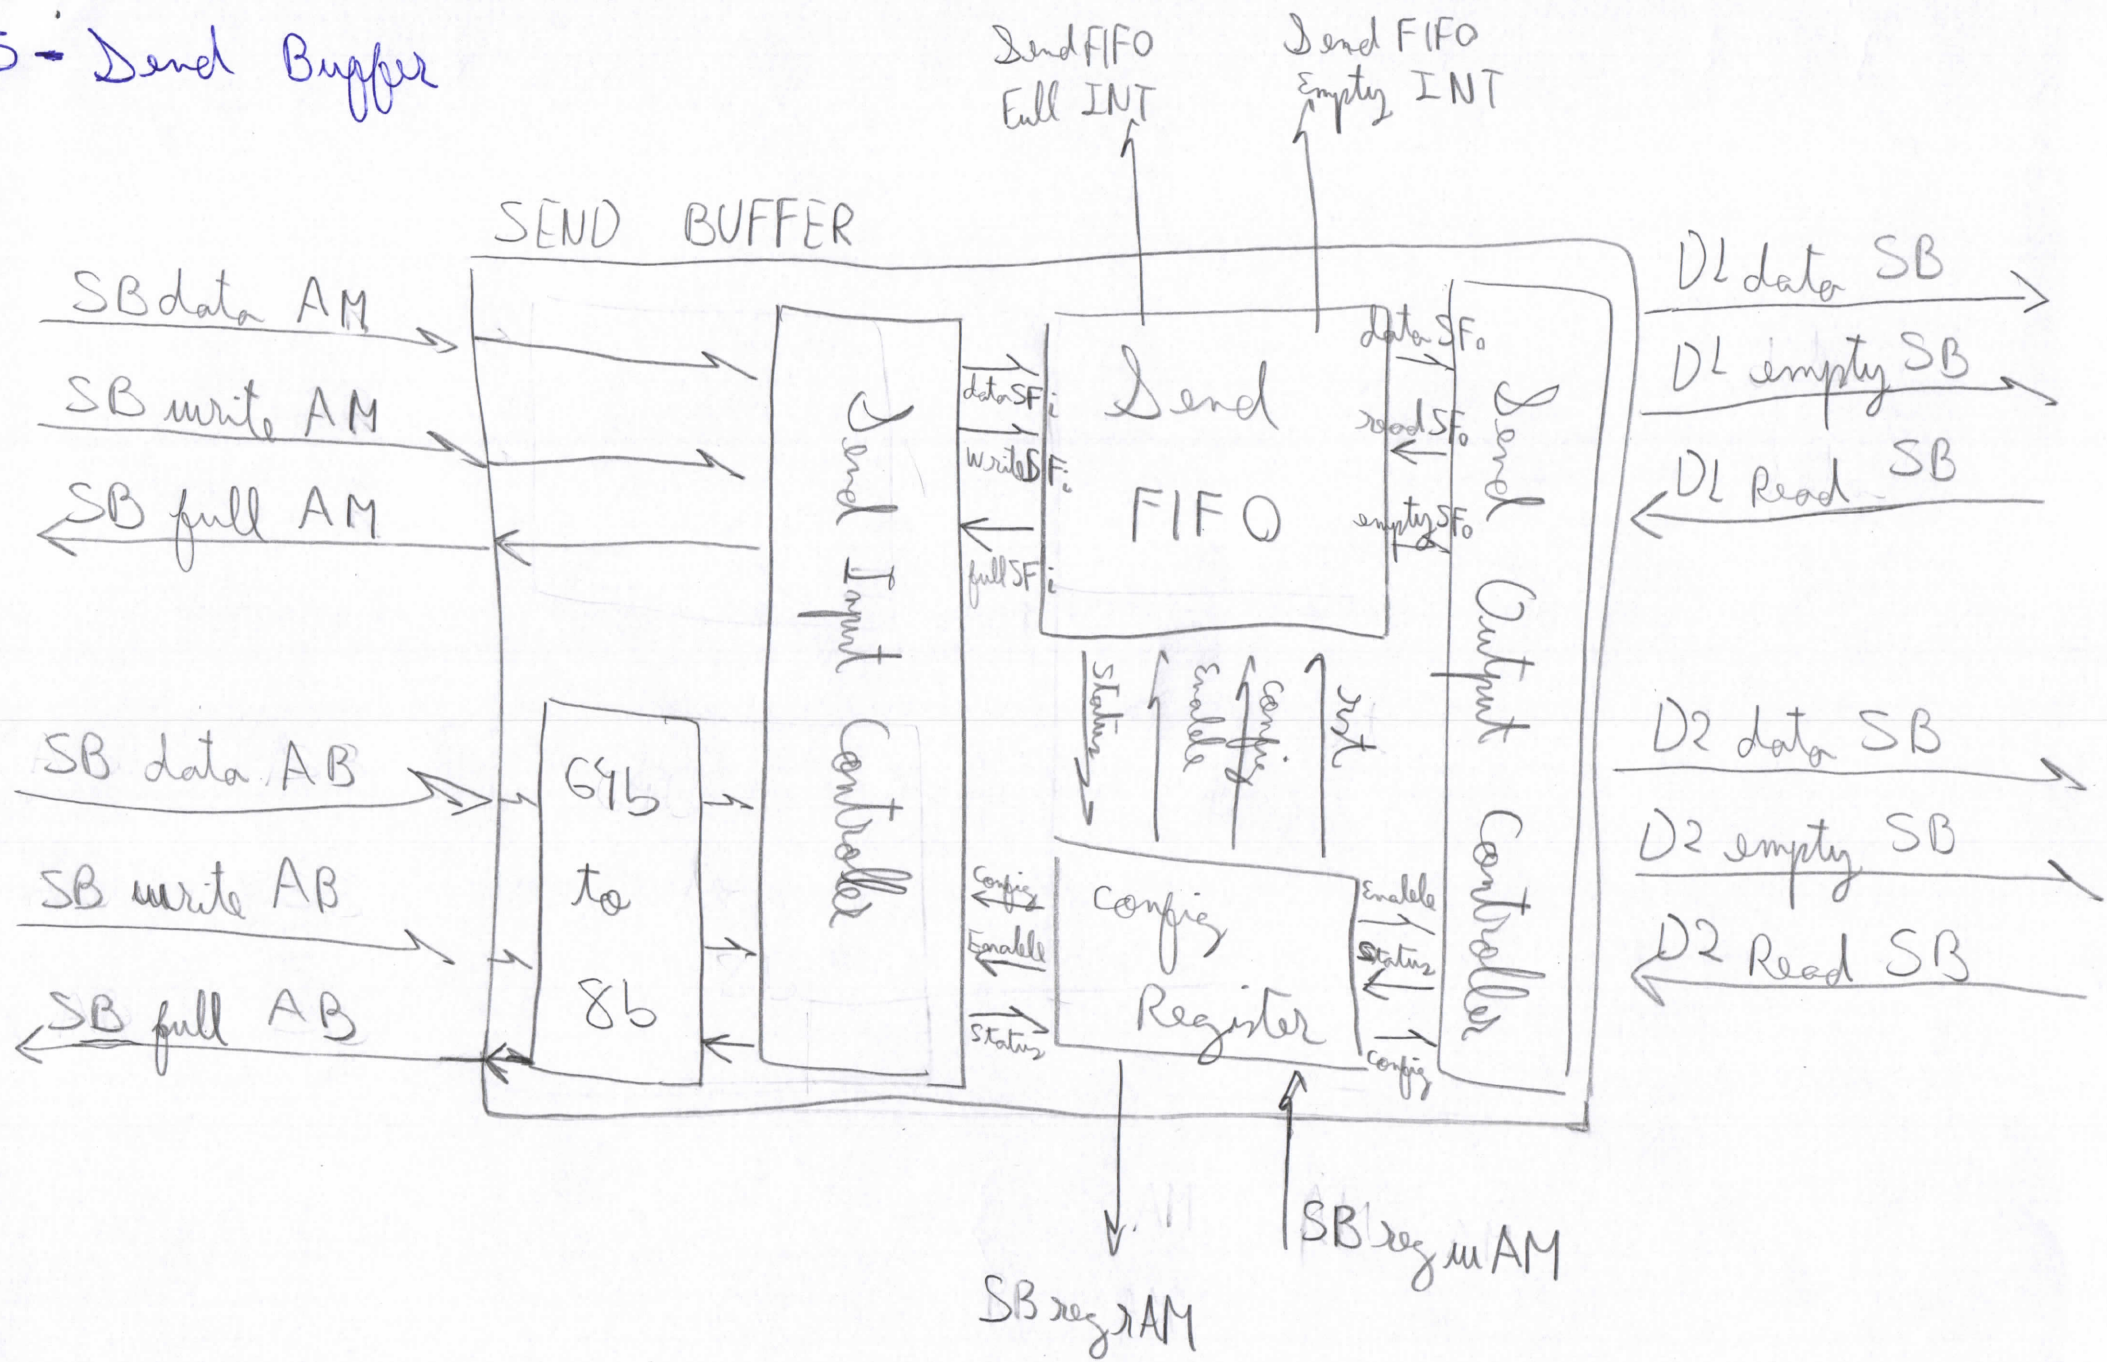 5 - Send Buffer
Send FIFO
Full INT
Send FIFO
Empty INT
SEND BUFFER
SB data AM
SB write AM
SB full AM
SB data AB
SB write AB
SB full AB
64b
to
8b
Send Input Controller
data SFi
write SFi
full SFi
Send
FIFO
data SFo
read SFo
empty SFo
Send Output Controller
Status
Enable
Config
rst
Config
Enable
Status
Config
Register
Enable
Status
Config
D1 data SB
D1 empty SB
D1 Read SB
D2 data SB
D2 empty SB
D2 Read SB
SB reg r AM
SB reg w AM